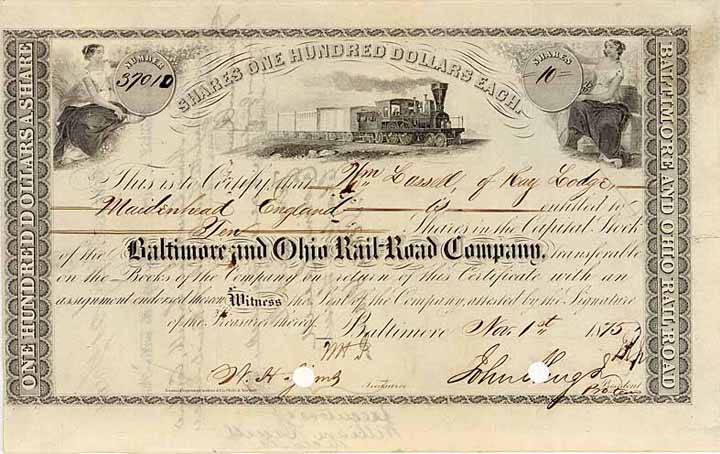 SHARES ONE HUNDRED DOLLARS EACH.
NUMBER
37010
SHARES
10
ONE HUNDRED DOLLARS A SHARE
BALTIMORE AND OHIO RAIL ROAD
This is to Certify, that Wm Lassell, of Ray Lodge,
Maidenhead England is entitled to
Ten Shares in the Capital Stock
of the Baltimore and Ohio Rail-Road Company, transferable
on the Books of the Company on return of this Certificate with an
assignment endorsed thereon. Witness the Seal of the Company, attested by the Signature
of the Treasurer thereof.
Baltimore Nov. 1st 1875
W. H.
Treasurer
John
President
Pro tem